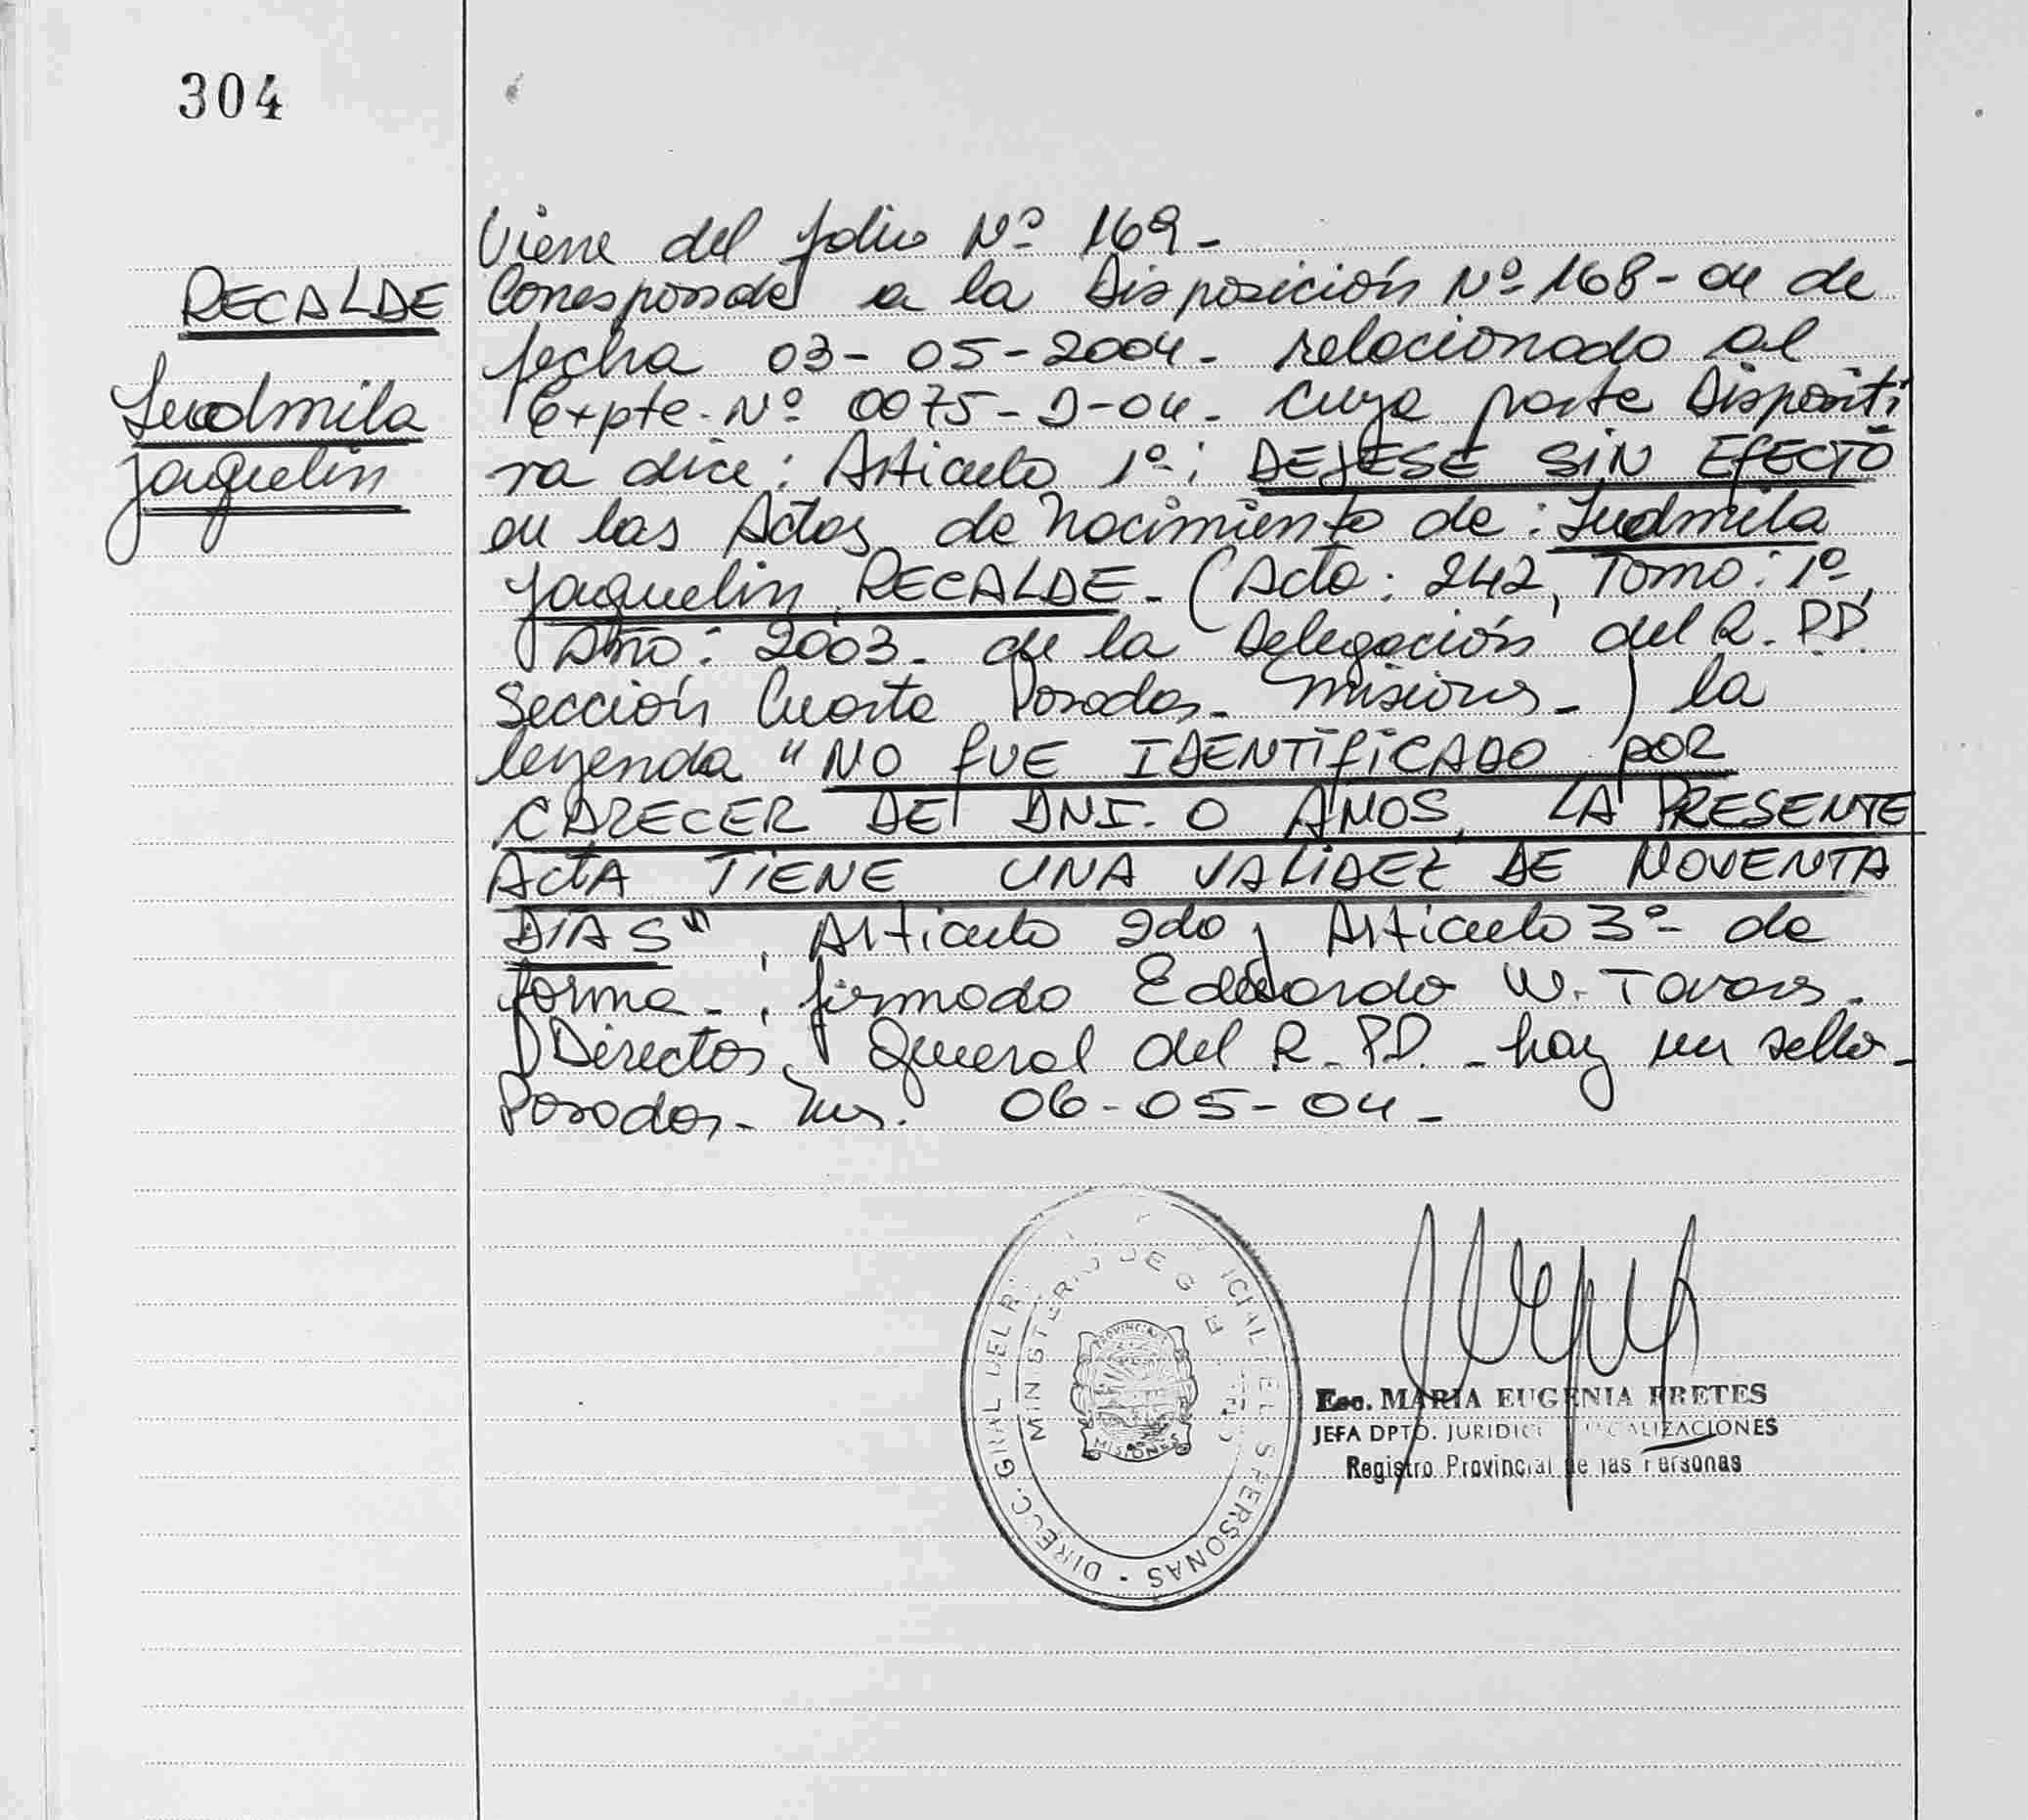 304
RECALDE
Ludmila
Jaquelin
Viene del folio Nº 169-
Corresponde a la Disposición Nº 168-04 de
fecha 03-05-2004- relacionado al
Expte. Nº 0075-D-04- Cuya parte Dispositi
va dice: Articulo 1º: DEJESE SIN EFECTO
en las Actas de Nacimiento de: Ludmila
Jaquelin RECALDE- (Acta: 242, Tomo: 1º,
Año: 2003- de la Delegación del R.P.P.
Sección Cuarta Posadas- Misiones-) la
leyenda "NO FUE IDENTIFICADO POR
CARECER DE DNI. O AMOS, LA PRESENTE
ACTA TIENE UNA VALIDEZ DE NOVENTA
DIAS", Articulo 2do y Articulo 3º de
forma-; firmado Eduardo W. Tavares-
Director General del R.P.P. - hay un sello-
Posadas- Mns. 06-05-04-
DIRECC. GRAL DEL PERSONAS
MINISTERIO DE G
PROVINCIA
MISIONES
Esc. MARIA EUGENIA FRETES
JEFA DPTO. JURIDICO
Registro Provincial de las Personas